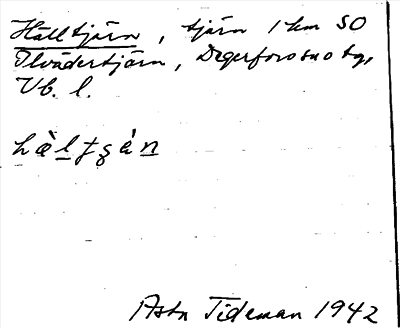 Hälltjärn, tjärn 1 km SO
Ilvädertjärn, Degerfors sn o tg,
Vb. l.
Asta Tideman 1942